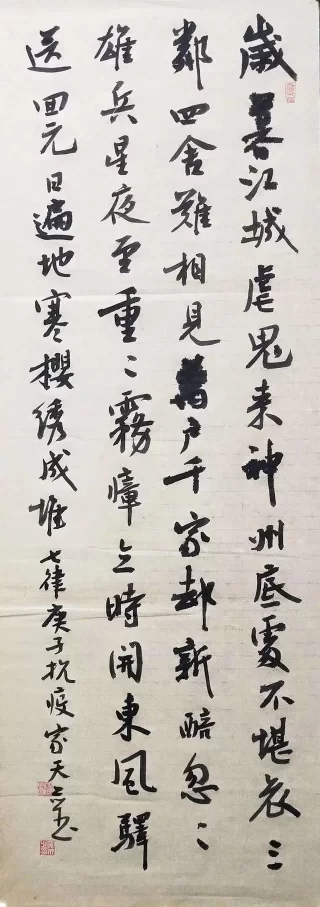 歲暮江城虐鬼来神州底處不堪哀三
鄰四舍難相見萬户千家却新醅忽〻
雄兵星夜至重〻霧嶂立時開東風驛
送回元日遍地寒櫻綉成堆七律庚子抗疫家天